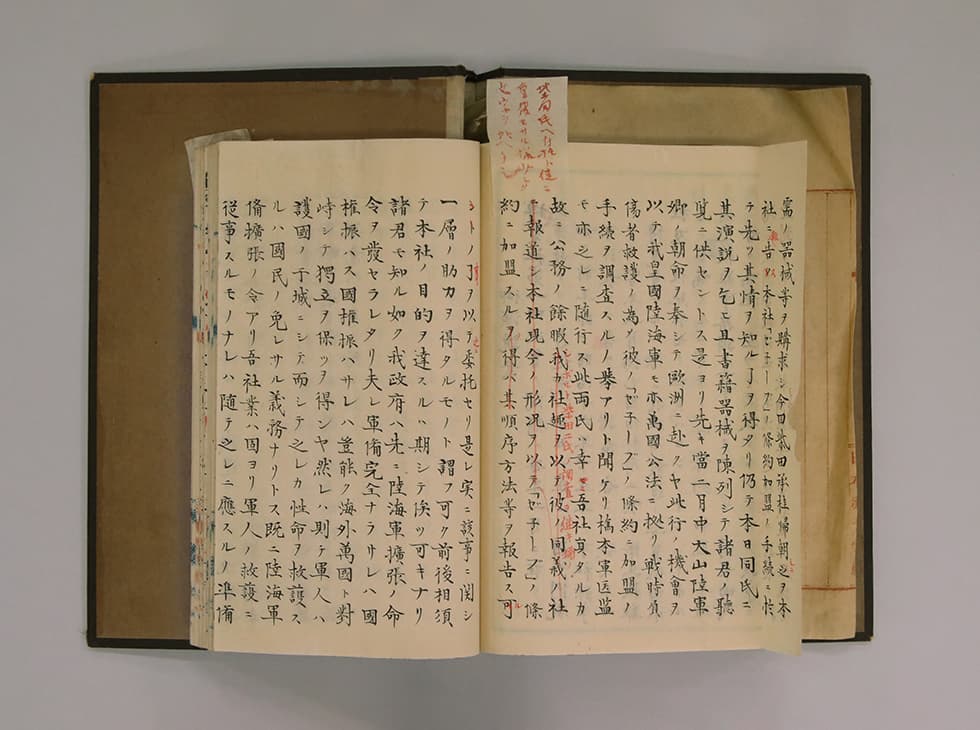 需ノ器械等ヲ購求シ今回柴田承桂帰朝之ヲ本
社ニ告ケ本社「ゼ子ーブ」ノ條約加盟ノ手続ニ怙
テ先ツ其情ヲ知ルヿヲ得タリ仍テ本日同氏ニ
其演説ヲ乞ヒ且書籍器械ヲ陳列シテ諸君ノ聽
覧ニ供セントス是ヨリ先キ當二月中大山陸軍
卿ハ朝命ヲ奉シテ欧洲ニ赴クヤ此行ノ機會ヲ
以テ我皇國陸海軍モ亦萬國公法ニ拠リ戦時負
傷者救護ノ為メ彼ノ「ゼ子ーブ」ノ條約ニ加盟ノ
手続ヲ調査スルノ擧アリト聞ケリ橋本軍医監
モ亦之レニ随行ス此両氏ハ幸ニ吾社員タルカ
故ニ公務ノ餘暇我カ社趣ヲ以テ彼ノ同義ノ社
ニ報道シ本社現今ノ形况ヲ以テ「ゼ子ーブ」ノ條
約ニ加盟スルヲ得ハ其順序方法等ヲ報告ス可
シトノヿヲ以テ委托セリ是レ実ニ該事ニ関シ
一層ノ助力ヲ得タルモノト謂フ可ク前後相須
テ本社ノ目的ヲ達スルハ期シテ俟ツ可キナリ
諸君モ知ル如ク我政府ハ先ニ陸海軍擴張ノ命
令ヲ發セラレタリ夫レ軍備完全ナラサレハ國
権振ハス國権振ハサレハ豈能ク海外萬國ト對
峙シテ獨立ヲ保ツヲ得ンヤ然レハ則テ軍人ハ
護國ノ干城ニシテ而シテ之レカ性命ヲ救護ス
ルハ國民ノ免レサル義務ナリトス既ニ陸海軍
備擴張ノ令アリ吾社業ハ固ヨリ軍人ノ救護ニ
従事スルモノナレハ随テ之レニ應スルノ準備